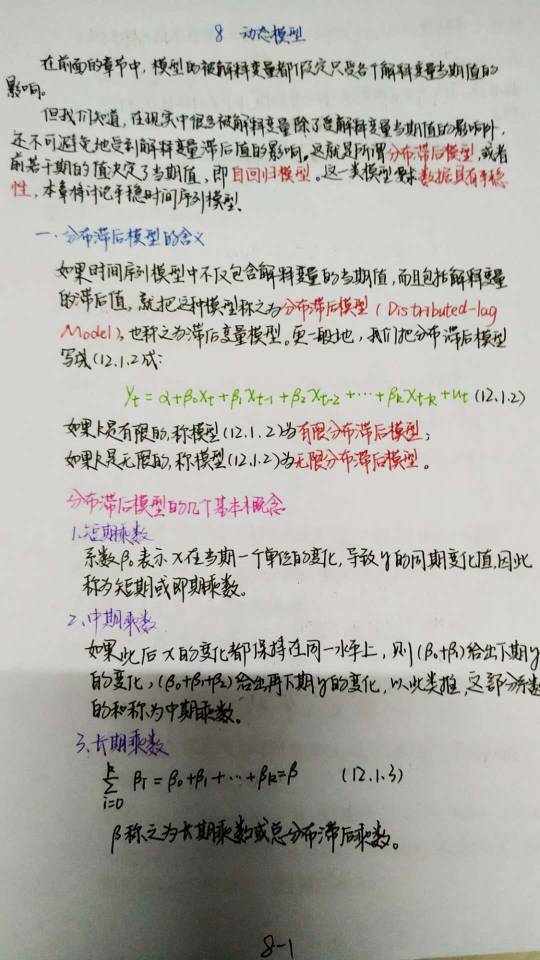 8 动态模型
在前面的章节中,模型的被解释变量都假定只受各个解释变量当期值的
影响。
但我们知道,在现实中很多被解释变量除了受解释变量当期值的影响外,
还不可避免地受到解释变量滞后值的影响。这就是所谓分布滞后模型,或者
前若干期的值决定了当期值,即自回归模型。这一类模型要求数据具有平稳
性,本章将讨论平稳时间序列模型。
一、分布滞后模型的含义
如果时间序列模型中不仅包含解释变量的当期值,而且包括解释变量
的滞后值,就把这种模型称之为分布滞后模型(Distributed-lag
Model),也称之为滞后变量模型。更一般地,我们把分布滞后模型
写成(12.1.2)式:
yt = α+β0xt+β1xt-1+β2xt-2+…+βkxt-k+ut (12.1.2)
如果k是有限的,称模型(12.1.2)为有限分布滞后模型;
如果k是无限的,称模型(12.1.2)为无限分布滞后模型。
分布滞后模型的几个基本概念
1、短期乘数
系数β0表示x在当期一个单位的变化,导致y的同期变化值,因此
称为短期或即期乘数。
2、中期乘数
如果此后x的变化都保持在同一水平上,则(β0+β1)给出下期y
的变化,(β0+β1+β2)给出再下期y的变化,以此类推,这部分系数
的和称为中期乘数。
3、长期乘数
k∑i=0 βi = β0+β1+…+βk=β (12.1.3)
β称之为长期乘数或总分布滞后乘数。
8-1